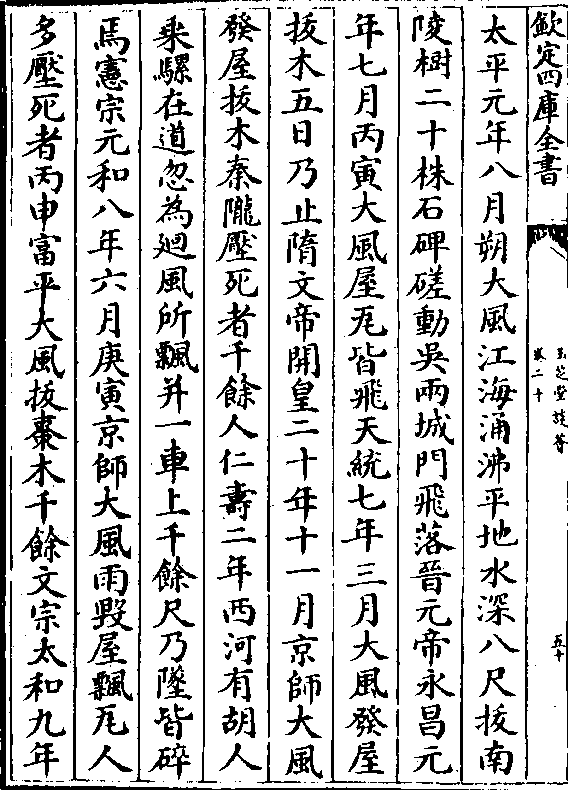 欽定四庫全書
玉芝堂談薈
卷二十
五十
太平元年八月朔大風江海涌沸平地水深八尺拔南
陵樹二十株石碑磋動吳兩城門飛落晉元帝永昌元
年七月丙寅大風屋瓦皆飛天統七年三月大風發屋
拔木五日乃止隋文帝開皇二十年十一月京師大風
發屋拔木秦隴壓死者千餘人仁壽二年西河有胡人
乗騾在道忽為廻風所飄并一車上千餘尺乃墜皆碎
焉憲宗元和八年六月庚寅京師大風雨毀屋飄瓦人
多壓死者丙申富平大風拔棗木千餘文宗太和九年